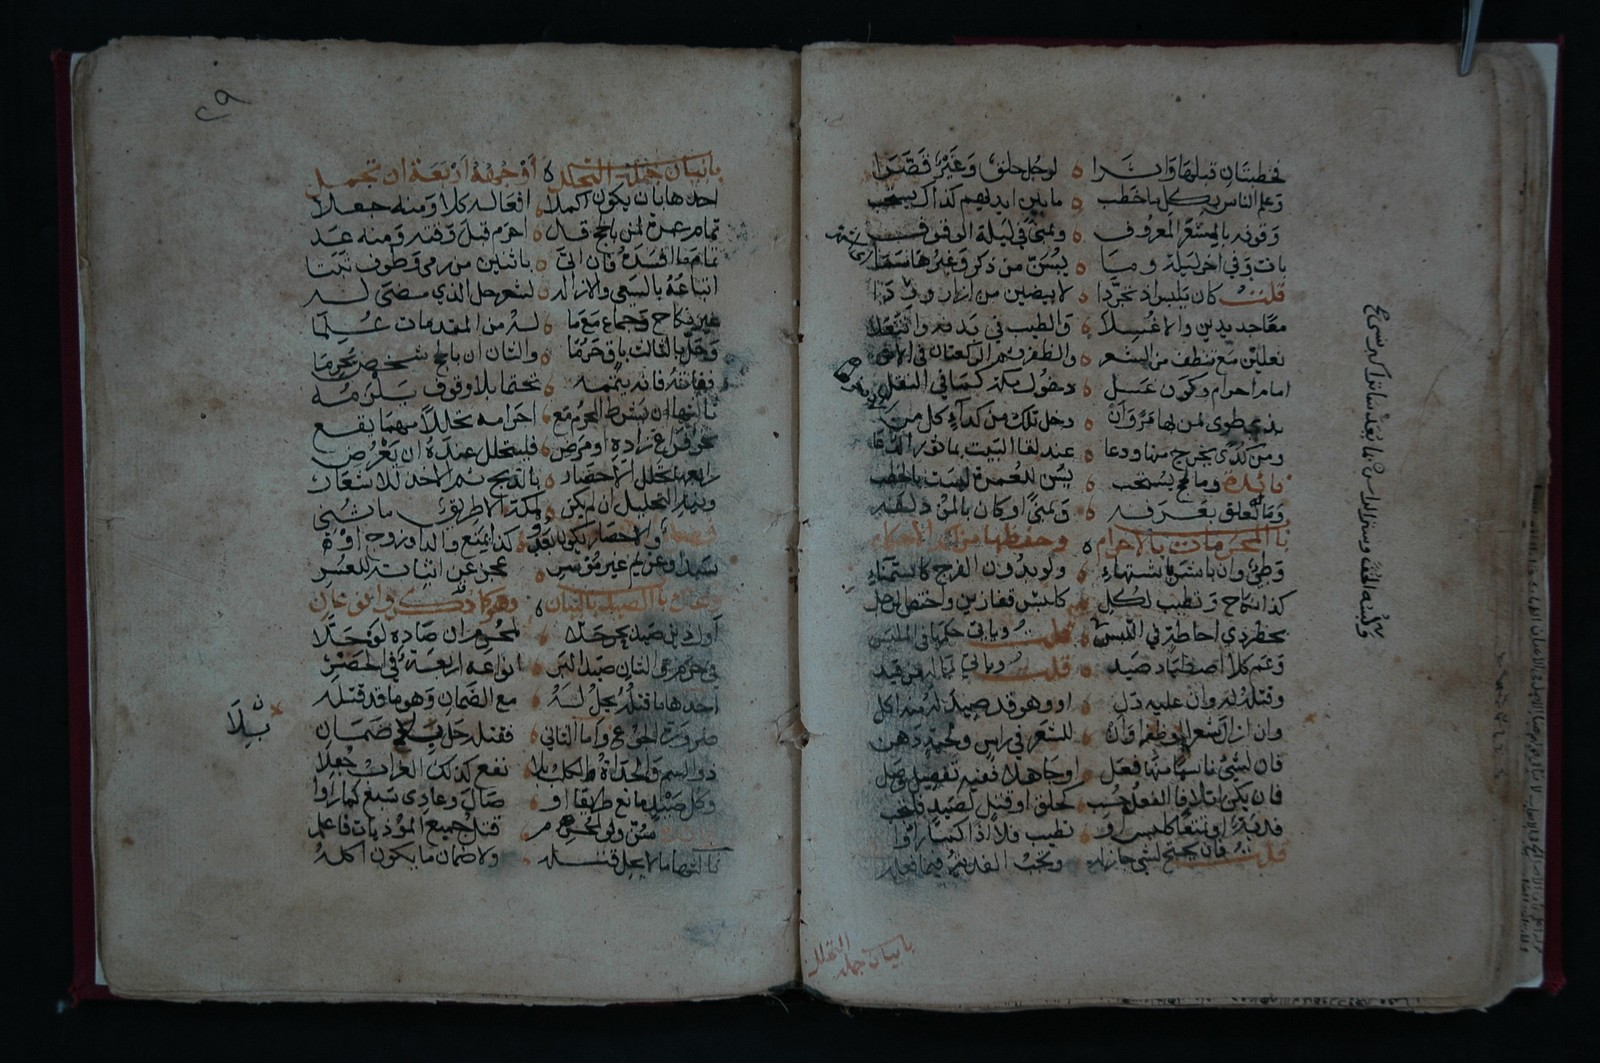 فخطبتان قبلها وان يرا ه لرجل حلق وغير قصرا
وعلم الناس بكل ما خطب ه ما بين ايديهم كذاك يستحب
وقوفه بالمشعر المعروف ه وبمنى في ليلة الوقوف
بات وفي اخر ليلة وميا ه يسن من ذكر وغير ها سما
قلت كان يلبس اذ تجردا ه لابيضين من ازار وردا
معا جديدين والا غسلا ه والطيب في بدنه وانتعلا
نعلين مع تنظف من الشعر ه والظفر ثم الركعتان في الاثر
امام احرام وكون غسل ه دخول مكة كما في النقل
بذي طوى لمن بها مر وان ه دخل تلك من كداء كل من
ومن كدى يخرج منها ودعا ه عند لقا البيت بماثور الدعا
فائدة وما لحج يستحب ه يسن للعمرة ليست بالخطب
وما تعلق بعرفه ه ومنى او كان بالمزدلفه
باب المحرمات بالاحرام ه وحفظها من اكد الاحكام
وطئ وان باشر باشتهاء ه ولو بدون الفرج كاستمناء
كذا نكاح وتطيب لكل ه كلبس قفازين واختص الرجل
بحظر ذي احاطة في اللبس قلت وياتي حكمها في الملبس
وعم كلا اصطياد صيد ه قلت وياتي ماله من قيد
وقتله له وان عليه دل ه او وهو قد صيد له منه اكل
وان ازال شعرا وظفرا وان ه للشعر في راس ولحية دهن
فان لشئ ناسيا منها فعل ه او جاهلا ففيه تفصيل حصل
فان يكن اتلافا الفعل حسب ه كحلق او قتل لصيد فلتجب
فدية او تمتعا كلبس او ه تطيب فلا اذا كما راوا
قلت فان يحتج لشئ جاز له ه وتجب الفدية فيما فعله
باب بيان جملة التحلل
وكتبه الفقه
باب بيان جملة التحلل ه اوجهه اربعة ان تجمل
احدها بان يكون اكملا ه افعاله كلا ومنه جعلا
تمام عمرة لمن بالحج قال ه احرم قبل وقته ومنه عد
تمام ما افسده وان اتى ه باثنين من رمي وطوف ثبتا
اتباعه بالسعي والازاله ه لشعر حل الذي مضى له
غير نكاح وجماع مع ما ه له من المقدمات علما
وحل بالثالث باق حرما ه والثان ان بالحج شخص محرما
ففاته فانه يتممه ه تحتما بلا وقوف يلزمه
ثالثها ان يشرط المحرم مع ه احرامه تحللا مهما يقع
نحو فراغ زاده او مرض ه فليتحلل عنده ان يعرض
رابعها تحلل الاحصار ه بالذبح ثم الاخذ للاشعار
ونية التحليل ان لم يكن ه لمكة الا طريق ما ثني
والاحصار يكون بعدو كذا بمنع والد او زوج او
سيد او غريم غير موسر ه عجز عن اثبات للعسر
باب الصيد بالبيان ه
اول ذين صيد بحر حلا ه لمحرم ان صاده لو حلا
في حرم والثان صيد البر ه انواعه اربعة في الحصر
احدها ما قتله يحل له ه مع الضمان وهو ما قد قتله
ضرورة الجوع واما الثاني ه فقتله حل بلا ضمان
ذو السم والحداة والكلب بلا ه نفع كذلك الغراب جعلا
وكل صيد مانع طريقا او ه صال وعادي سبع كما راوا
سن ولو لمحرم ه قتل جميع المؤذيات فاعلم
ثالثها ما لا يحل قتله ه ولا ضمان ما يكون اكله
بلا
٢٩